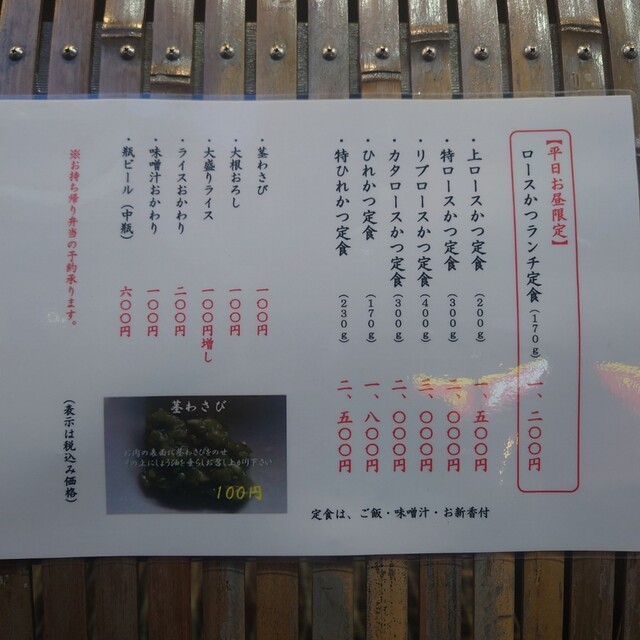 【平日お昼限定】
ロースかつランチ定食(170g) 一、二〇〇円
・上ロースかつ定食(200g) 一、五〇〇円
・特ロースかつ定食(300g) 二、〇〇〇円
・リブロースかつ定食(400g) 三、〇〇〇円
・カタロースかつ定食(300g) 二、〇〇〇円
・ひれかつ定食(170g) 一、八〇〇円
・特ひれかつ定食(230g) 二、五〇〇円
定食は、ご飯・味噌汁・お新香付
・茎わさび 一〇〇円
・大根おろし 一〇〇円
・大盛りライス 一〇〇円増し
・ライスおかわり 二〇〇円
・味噌汁おかわり 一〇〇円
・瓶ビール(中瓶) 六〇〇円
※お持ち帰り弁当の予約承ります。
(表示は税込み価格)
茎わさび
お肉の表面に茎わさびをのせ
その上にしょう油を垂らしお召し上がり下さい
100円